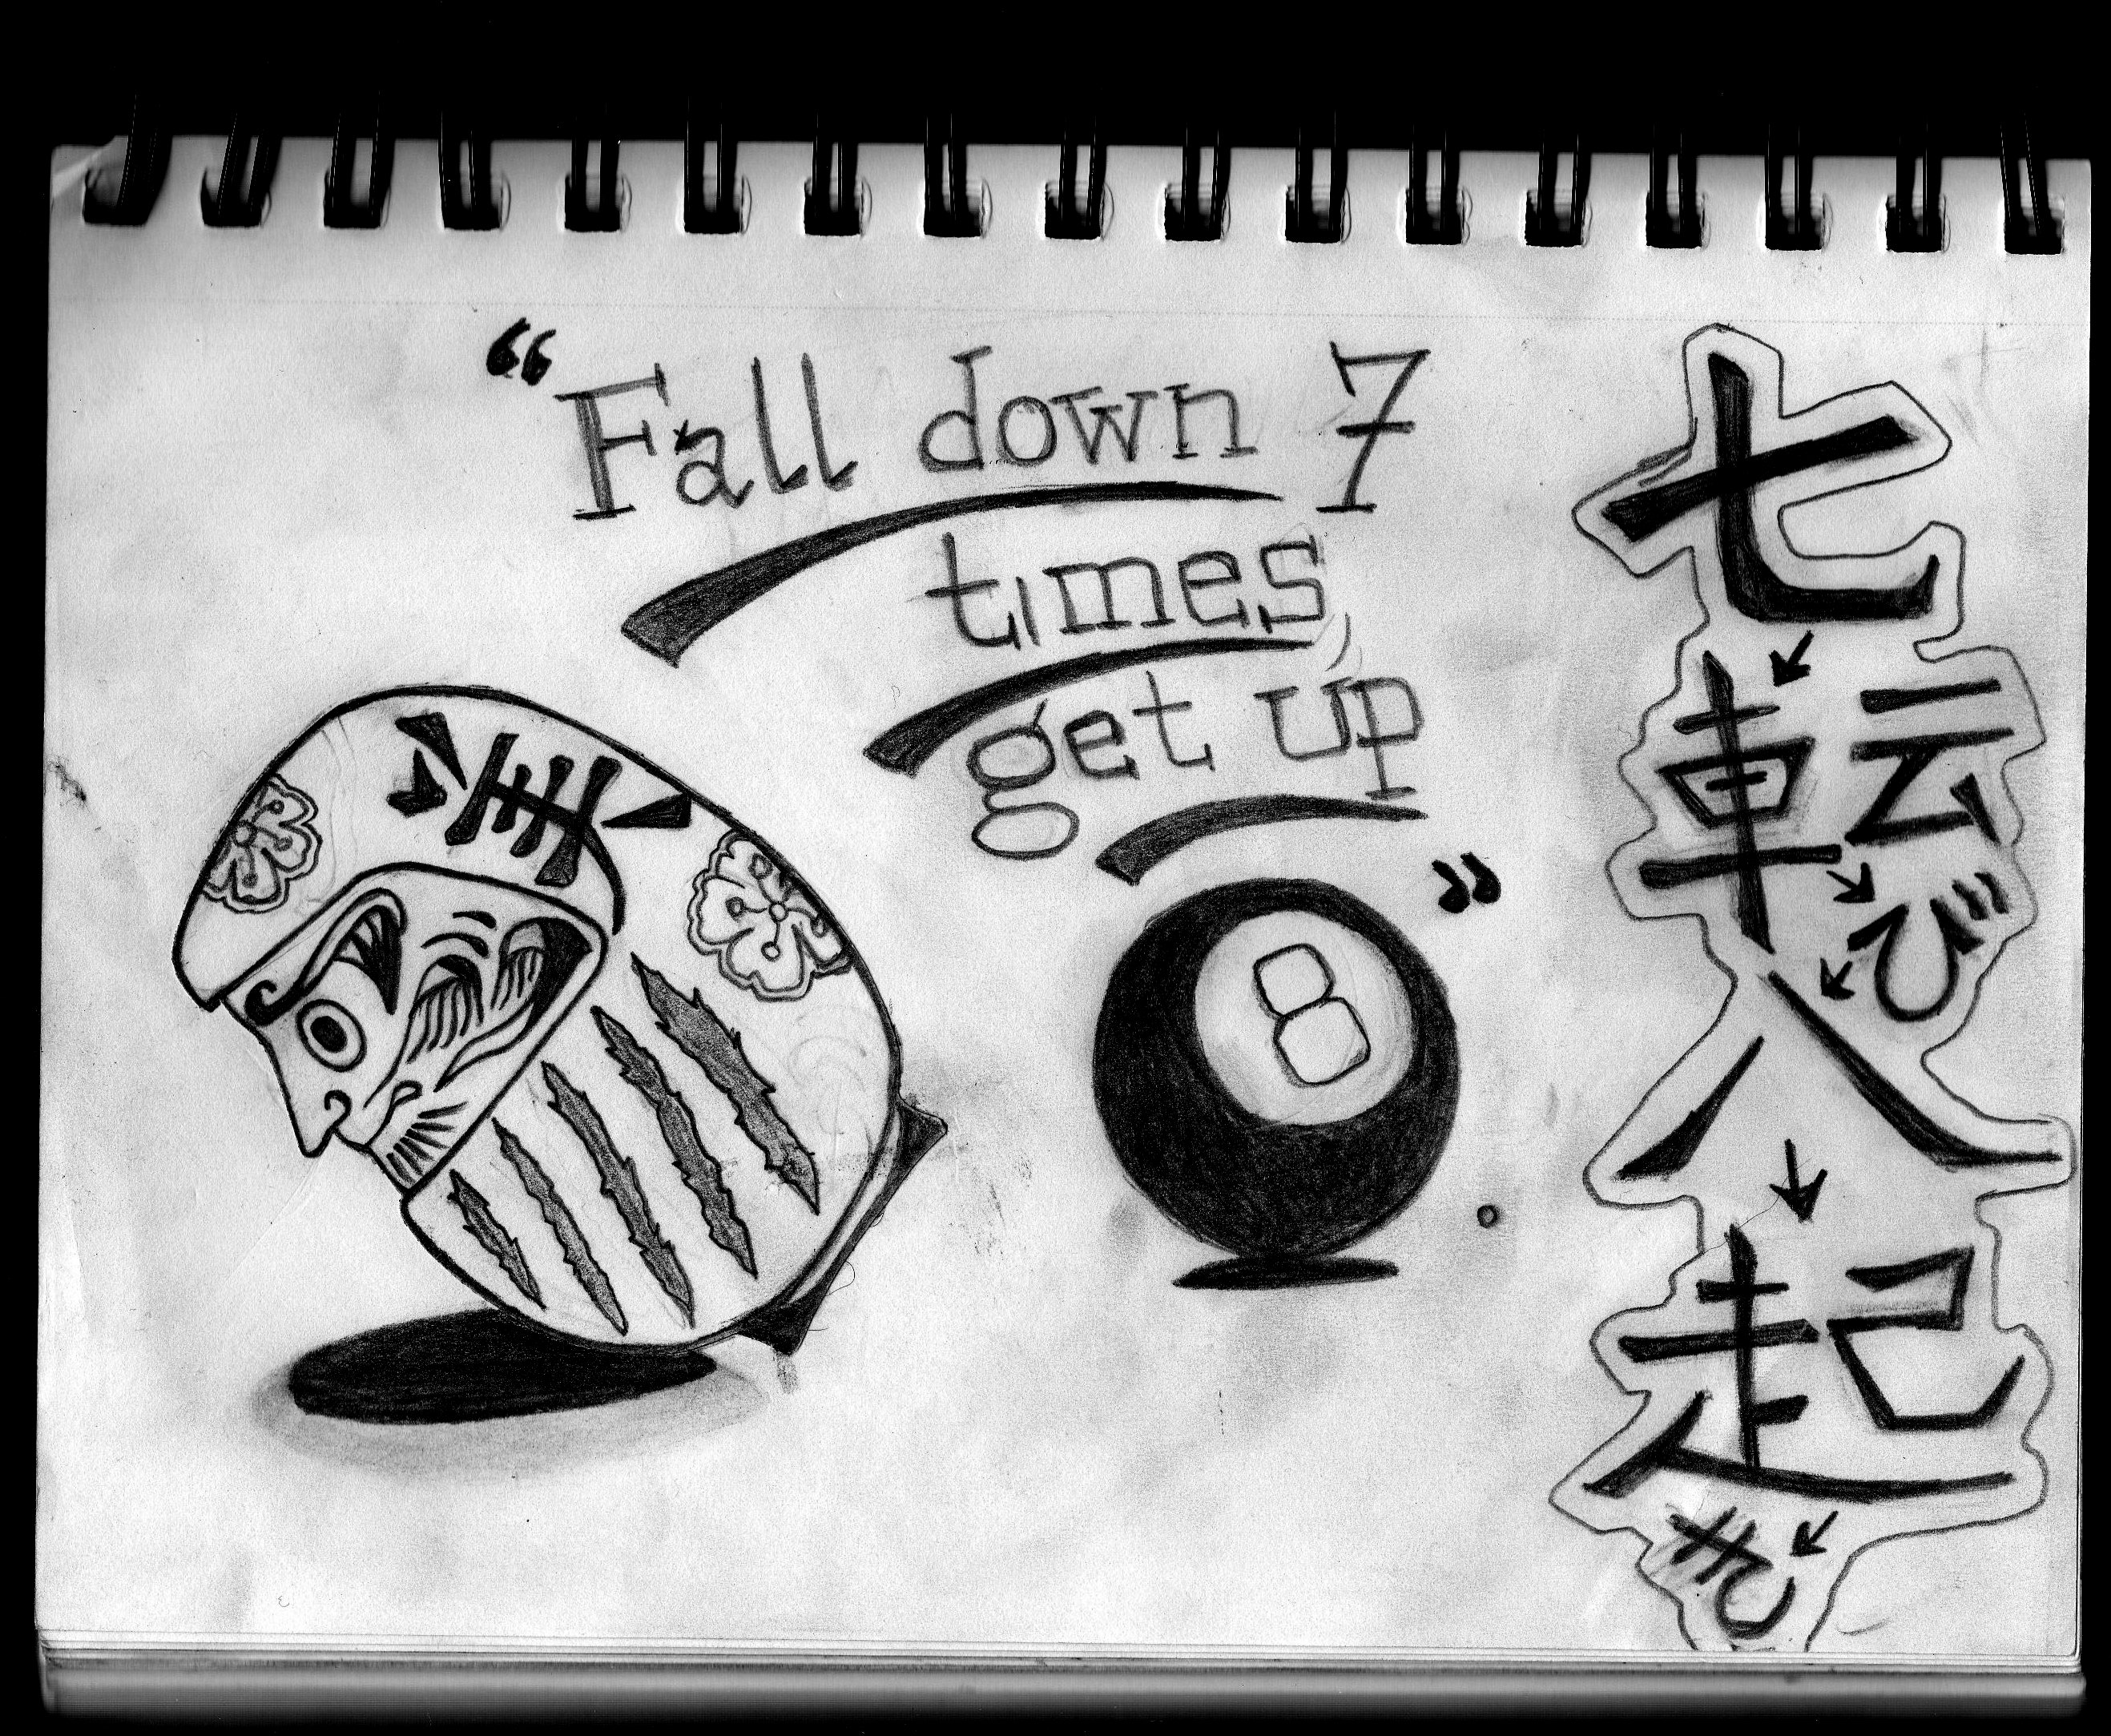 “Fall down 7
times,
get up
8”.
七転び八起き